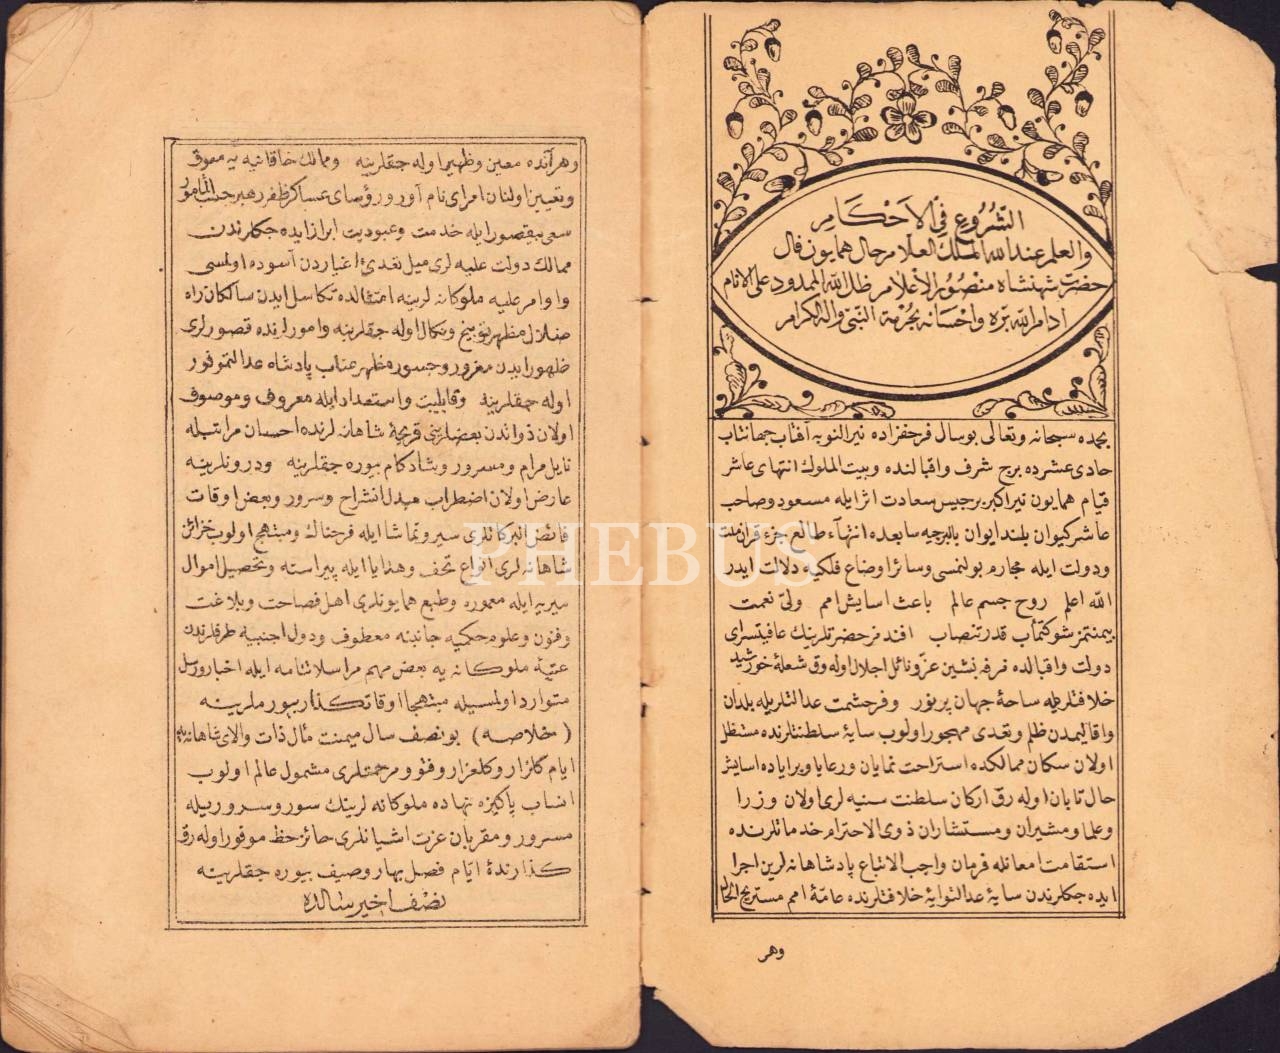 الشروع في الاحكام
والعلم عند الله الملك العلام حال همايون فال
حضرت شهنشاه منصور الاعلام ظل الله الممدود على الانام
ادام الله بره واحسانه بحرمة النبي واله الكرام
بحمده سبحانه وتعالى بوسال فرحفزاده نير النوبه آفتاب جهانتاب
حادى عشرده برج شرف واقبالنده وبيت الملوك انتهاى عاشر
قيام همايون نير اكبر برجيس سعادت اثر ايله مسعود وصاحب
عاشر كيوان بلند ايوان بالدرجه سابعده انتهاء طالع جزء قران ملت
ودولت ايله مجارم بولنمسى وسائر اوضاع فلكيه دلالت ايدر
الله اعلم روح جسم عالم باعث اسايش امم ولى نعمت
بيمنتمز شوكتمأب قدرتنصاب افندمز حضرتلرينك عافيتسراى
دولت واقبالده مرفه نشين عز ونائل اجلال اوله رق شعله خورشيد
خلافتلريله ساحه جهان پرنور وفرحشمت عدالتلريله بلدان
واقاليمدن ظلم وتعدى مهجور اولوب سايه سلطنتلرنده مستظل
اولان سكان ممالكده استراحت نمايان ورعايا وبراياده اسايش
حال تابان اوله رق اركان سلطنت سنيه لرى اولان وزرا
وعلما ومشيران ومستشاران ذوى الاحترام خدماتلرنده
استقامت امعانله فرمان واجب الاتباع پادشاهانه لرين اجرا
ايده جكلرندن سايه عدالتوايه خلافتلرنده عامه امم مستريح الحال
وهر
وهر آنده معين وظهير اوله جقلرينه وممالك خاقانيه يه
وتعيين اولنان امراى نام آور ورؤساى عساكر ظفر رهبر حسب المأمور
سعى بيقصور ايله خدمت وعبوديت ابراز ايده جكلرندن
ممالك دولت عليه لرى ميل تعدئ اغياردن آسوده اولمسى
واوامر عليه ملوكانه لرينه امتثالده تكاسل ايدن سالكان راه
ضلال مظهر توبيخ ونكال اوله جقلرينه وامورلرنده قصورلرى
ظهور ايدن مغرور وجسور مظهر عتاب پادشاه عدالتموفور
اوله جقلرينه وقابليت واستعداد ايله معروف وموصوف
اولان ذواتدن بعضلرينى قريحه شاهانه لرنده احسان مراتبله
نايل مرام ومسرور وشادكام بيوره جقلرينه ودرونلرينه
عارض اولان اضطراب مبدل انشراح وسرور وبعض اوقات
فائض البركاتلرى سير وتماشا ايله فرحناك ومبتهج اولوب خزائن
شاهانه لرى انواع تحف وهدايا ايله پيراسته وتحصيل اموال
ميريه ايله معموره وطبع همايونلرى اهل فصاحت وبلاغت
وفنون وعلوم حكميه جانبنه معطوف ودول اجنبيه طرفلرندن
عتبه ملوكانه يه بعض مهم مراسلاتنامه ايله اخبار ورسل
متوارد اولمسيله مبتهجا اوقاتكذار بيورملرينه
(خلاصه) بونصف سال ميمنت مأل ذات والاى شاهانه يه
ايام گلزار وكلعزار وفتو ومرحمتلرى مشمول عالم اولوب
انساب پاكيزه نهاده ملوكانه لرينك سور وسروريله
مسرور ومقربان عزت اشيانلرى حائز حظ موفور اوله رق
كذارنده ايام فصل بهار وصيف بيوره جقلرينه
نصف اخير سالده
PHEBUS